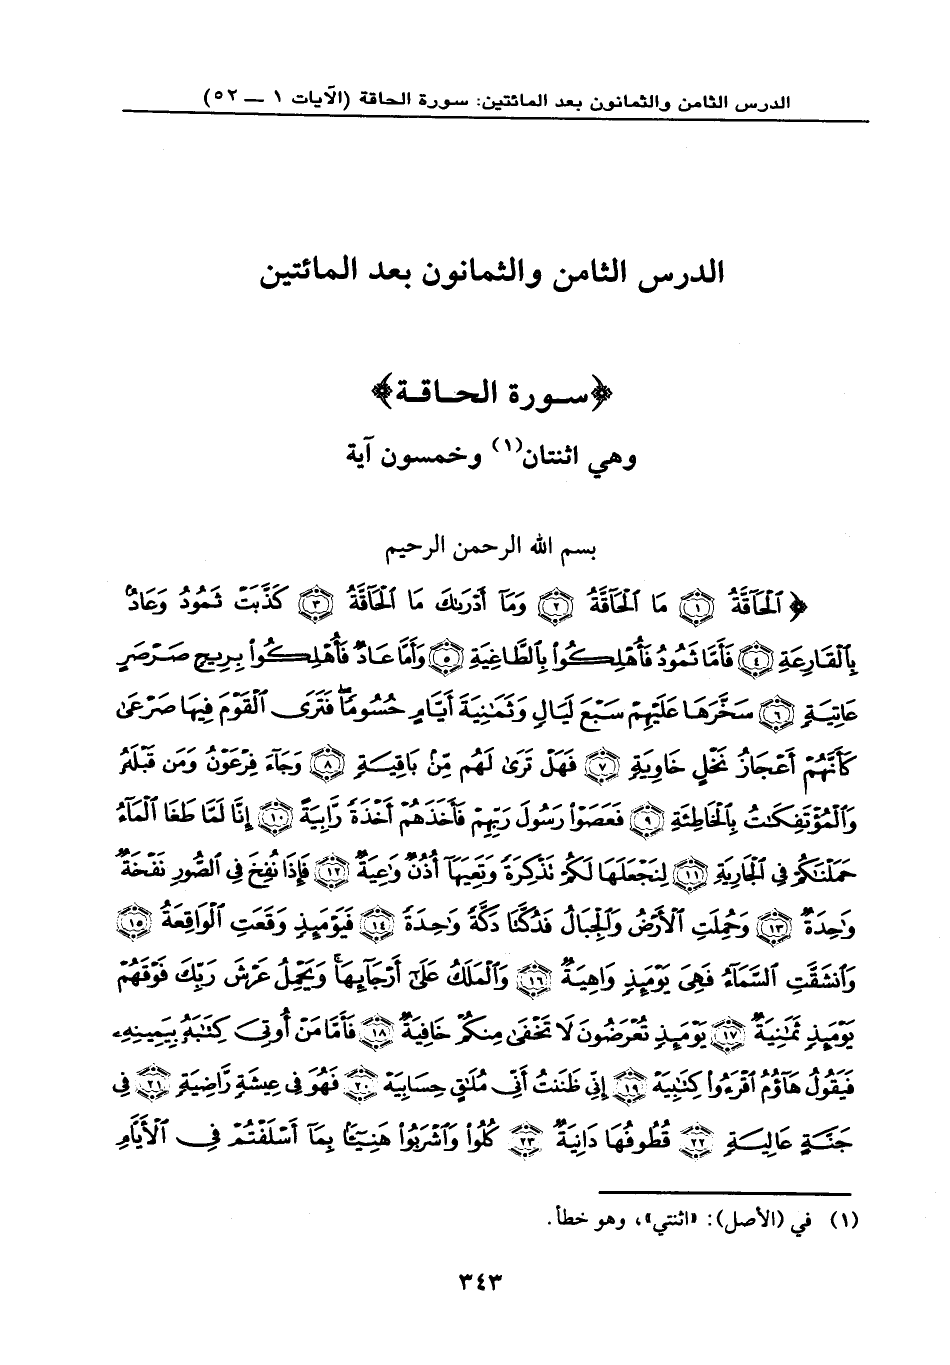 الدرس الثامن والثمانون بعد المائتين: سورة الحاقة (الآيات ١ — ٥٢)
الدرس الثامن والثمانون بعد المائتين
﴿سورة الحاقة﴾
وهي اثنتان(١) وخمسون آية
بسم الله الرحمن الرحيم
﴿ ٱلْحَآقَّةُ ١ مَا ٱلْحَآقَّةُ ٢ وَمَآ أَدْرَىٰكَ مَا ٱلْحَآقَّةُ ٣ كَذَّبَتْ ثَمُودُ وَعَادٌۢ
بِٱلْقَارِعَةِ ٤ فَأَمَّا ثَمُودُ فَأُهْلِكُوا۟ بِٱلطَّاغِيَةِ ٥ وَأَمَّا عَادٌ فَأُهْلِكُوا۟ بِرِيحٍ صَرْصَرٍ
عَاتِيَةٍ ٦ سَخَّرَهَا عَلَيْهِمْ سَبْعَ لَيَالٍ وَثَمَـٰنِيَةَ أَيَّامٍ حُسُومًاۖ فَتَرَى ٱلْقَوْمَ فِيهَا صَرْعَىٰ
كَأَنَّهُمْ أَعْجَازُ نَخْلٍ خَاوِيَةٍ ٧ فَهَلْ تَرَىٰ لَهُم مِّنۢ بَاقِيَةٍ ٨ وَجَآءَ فِرْعَوْنُ وَمَن قَبْلَهُۥ
وَٱلْمُؤْتَفِكَـٰتُ بِٱلْخَاطِئَةِ ٩ فَعَصَوْا۟ رَسُولَ رَبِّهِمْ فَأَخَذَهُمْ أَخْذَةً رَّابِيَةً ١٠ إِنَّا لَمَّا طَغَا ٱلْمَآءُ
حَمَلْنَـٰكُمْ فِى ٱلْجَارِيَةِ ١١ لِنَجْعَلَهَا لَكُمْ تَذْكِرَةً وَتَعِيَهَآ أُذُنٌ وَٰعِيَةٌ ١٢ فَإِذَا نُفِخَ فِى ٱلصُّورِ نَفْخَةٌ
وَٰحِدَةٌ ١٣ وَحُمِلَتِ ٱلْأَرْضُ وَٱلْجِبَالُ فَدُكَّتَا دَكَّةً وَٰحِدَةً ١٤ فَيَوْمَئِذٍ وَقَعَتِ ٱلْوَاقِعَةُ ١٥
وَٱنشَقَّتِ ٱلسَّمَآءُ فَهِىَ يَوْمَئِذٍ وَاهِيَةٌ ١٦ وَٱلْمَلَكُ عَلَىٰٓ أَرْجَآئِهَاۚ وَيَحْمِلُ عَرْشَ رَبِّكَ فَوْقَهُمْ
يَوْمَئِذٍ ثَمَـٰنِيَةٌ ١٧ يَوْمَئِذٍ تُعْرَضُونَ لَا تَخْفَىٰ مِنكُمْ خَافِيَةٌ ١٨ فَأَمَّا مَنْ أُوتِىَ كِتَـٰبَهُۥ بِيَمِينِهِۦ
فَيَقُولُ هَآؤُمُ ٱقْرَءُوا۟ كِتَـٰبِيَهْ ١٩ إِنِّى ظَنَنتُ أَنِّى مُلَـٰقٍ حِسَابِيَهْ ٢٠ فَهُوَ فِى عِيشَةٍ رَّاضِيَةٍ ٢١ فِى
جَنَّةٍ عَالِيَةٍ ٢٢ قُطُوفُهَا دَانِيَةٌ ٢٣ كُلُوا۟ وَٱشْرَبُوا۟ هَنِيٓـًٔۢا بِمَآ أَسْلَفْتُمْ فِى ٱلْأَيَّامِ
(١) في (الأصل): «اثنتي»، وهو خطأ.
٣٤٣